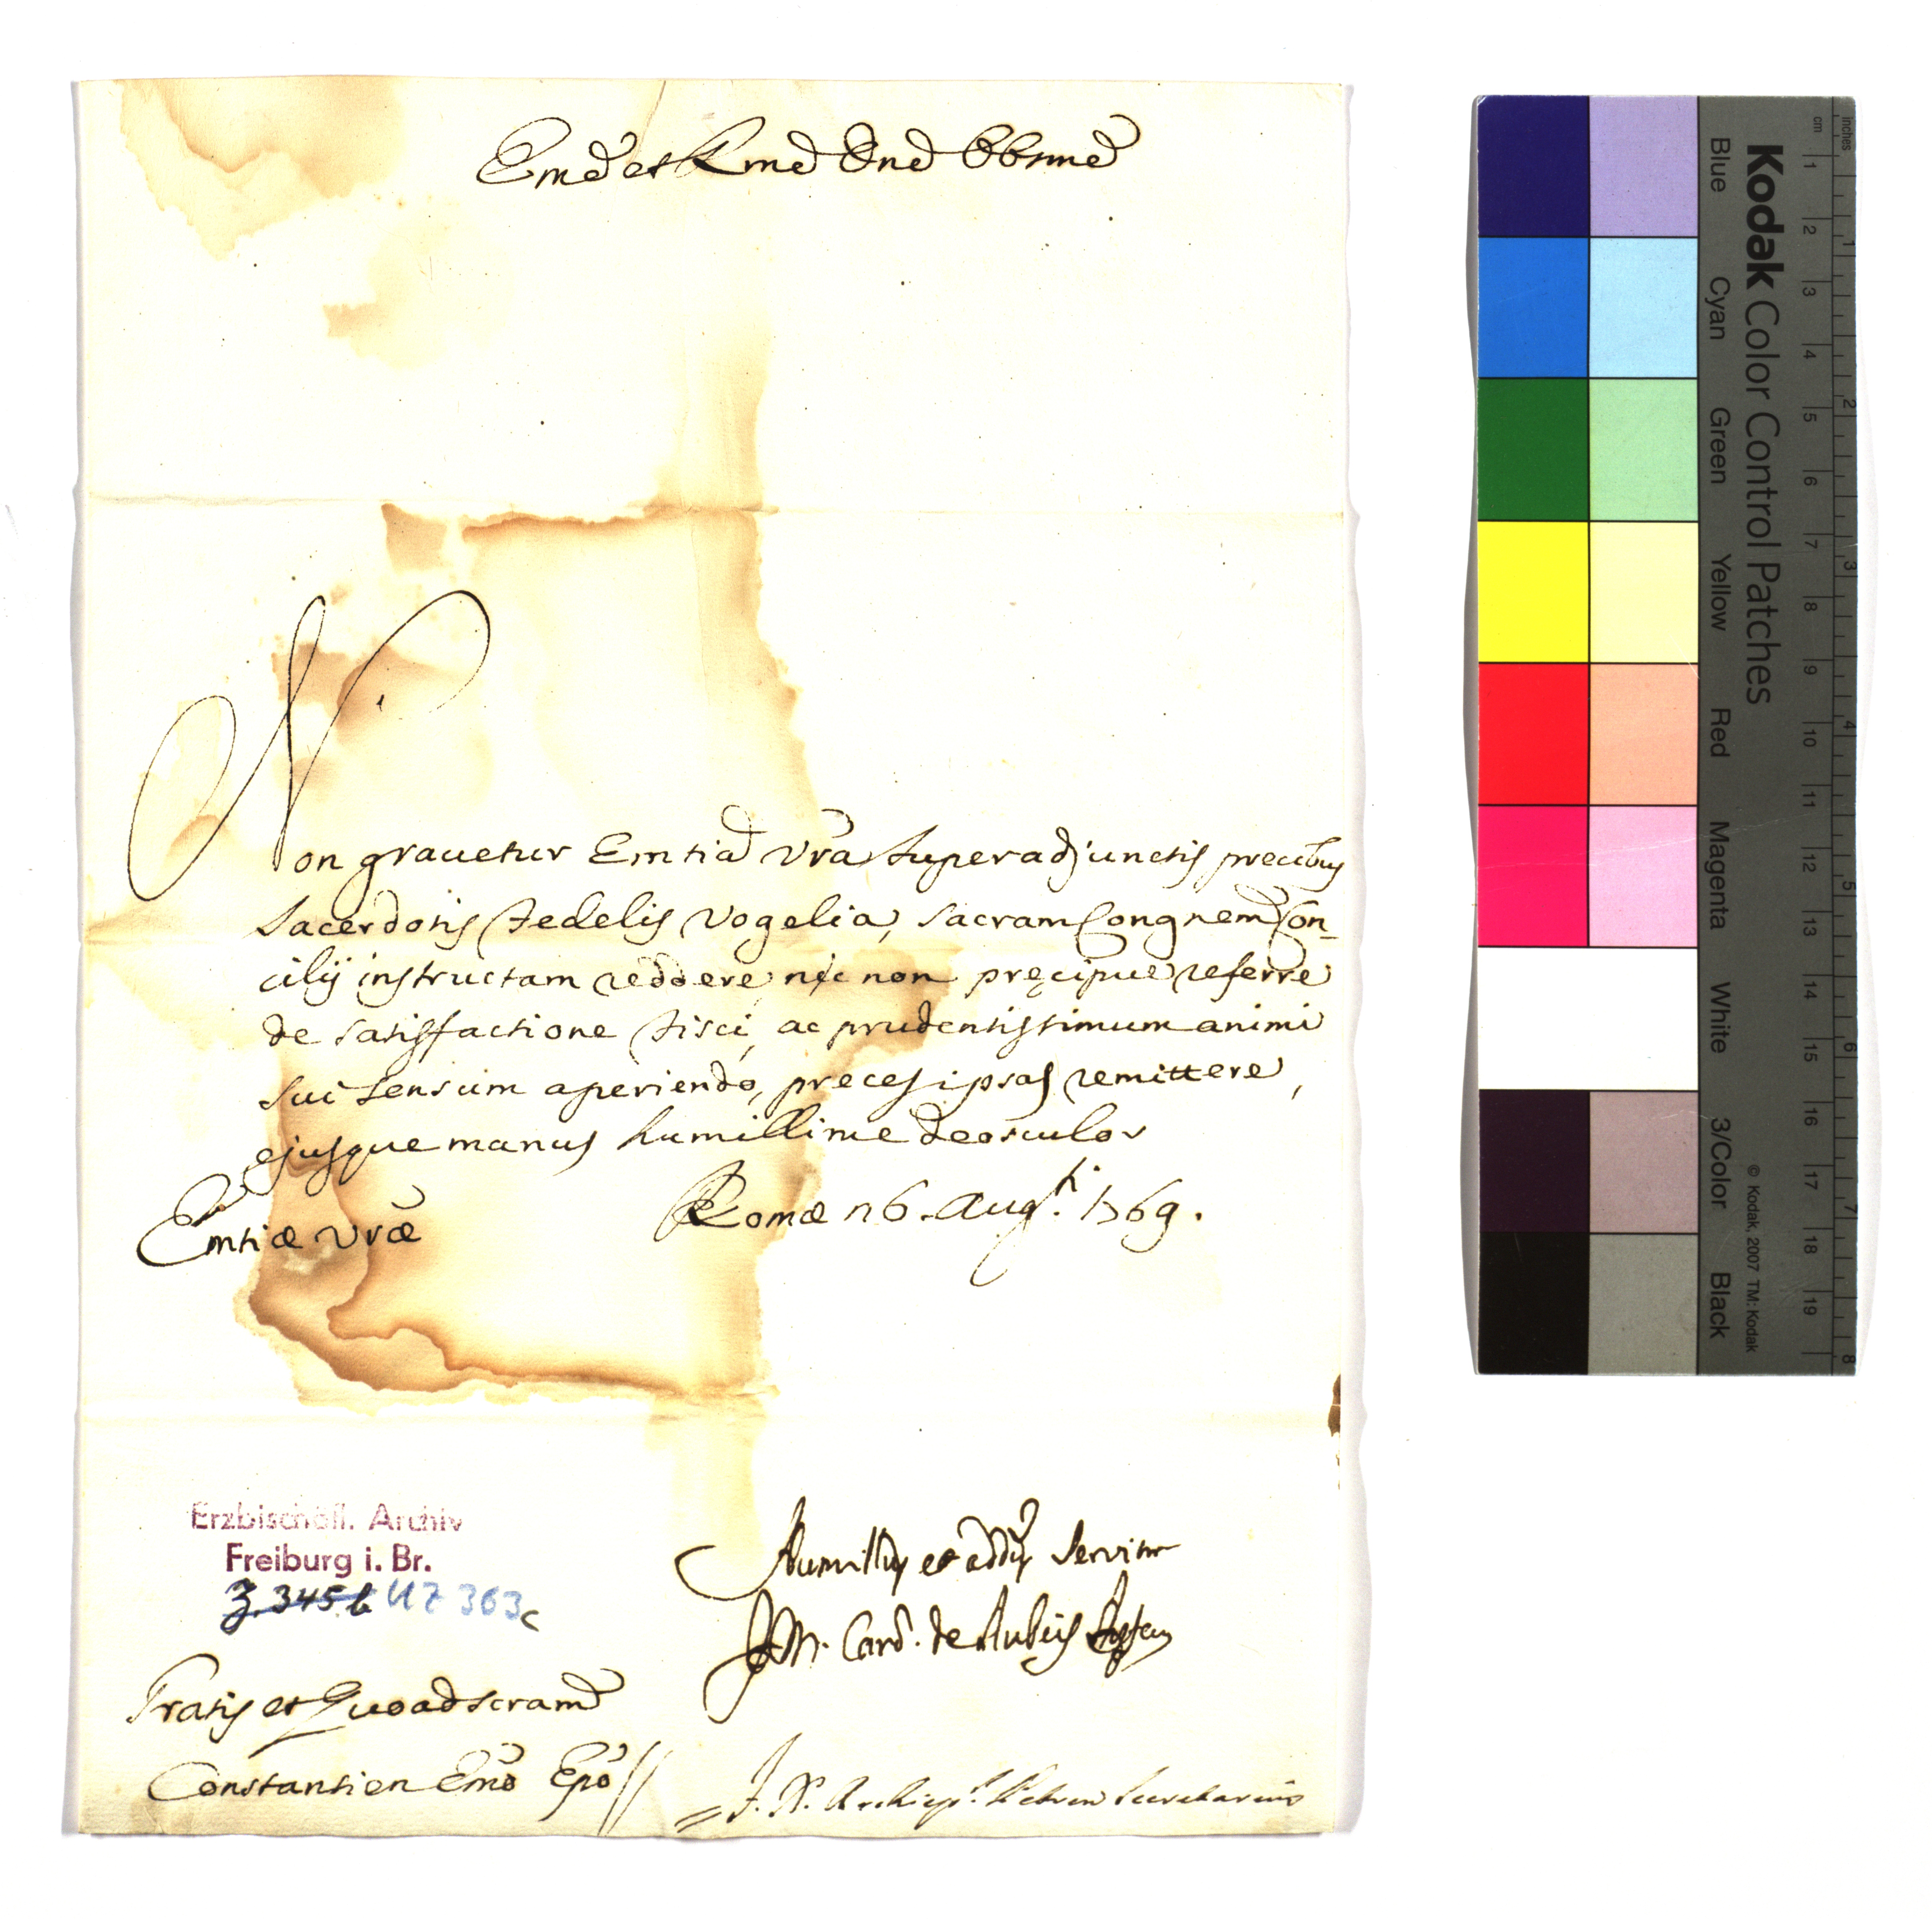 Eme et Rme Dne Obsme
Non gravetur Emtia Vra super adjunctis precibus
Sacerdotis Fedelis Vogelia, Sacram Congnem Con-
cilij instructam reddere nec non pręcipue referre
de satisfactione Fisci, ac prudentissimum animi
sui sensum aperiendo, preces ipsas remittere,
ejusque manus humillime deosculor
Emtiæ Vræ Romæ 26. Augti. 1769.
Erzbischöfl. Archiv
Freiburg i. Br.
Z. 345 b UZ 363c
Humillus et addus Servitor
J. M. Card. de Rubeis
Gratis et Quoad scram
Constantien Emo Epo
J. N. Archiep. Petren Secretarius
Kodak Color Control Patches
Blue Cyan Green Yellow Red Magenta White 3/Color Black
© Kodak, 2007 TM: Kodak
cm 1 2 3 4 5 6 7 8 9 10 11 12 13 14 15 16 17 18 19
inches 1 2 3 4 5 6 7 8